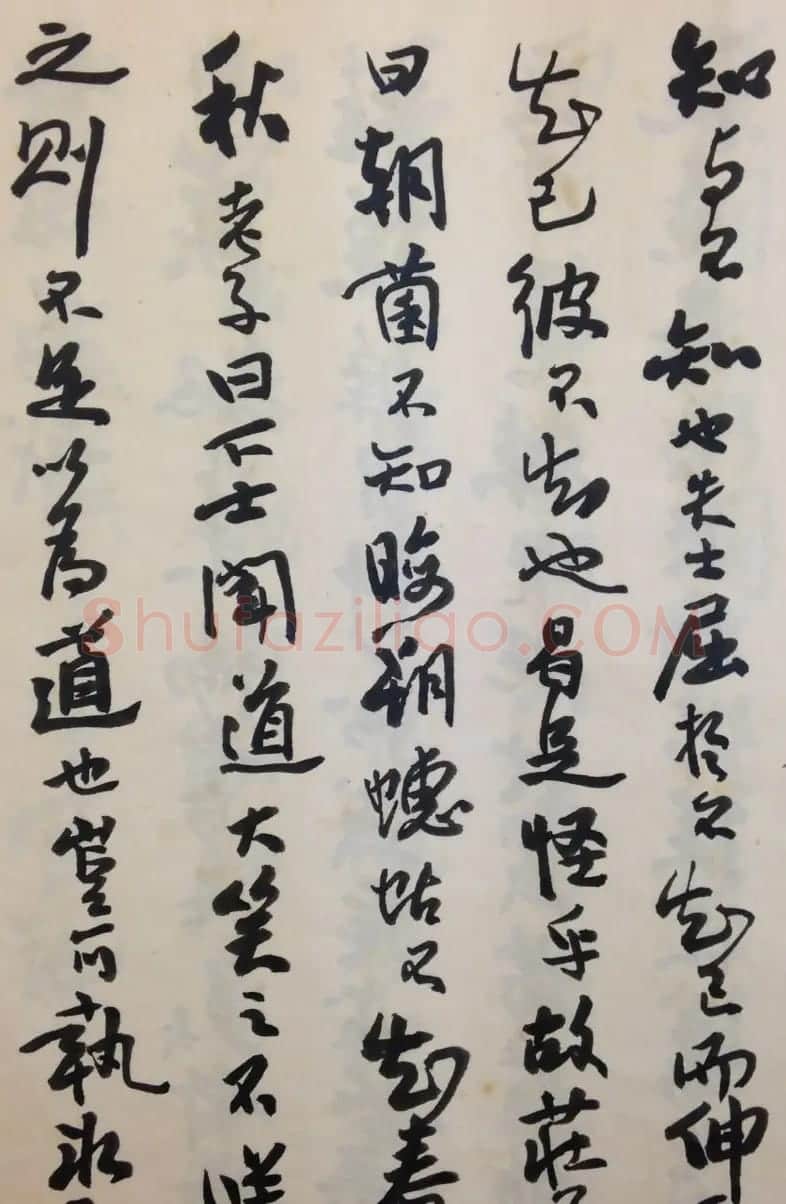 知与不知也夫士屈於不知己而伸
知己彼不知也曷足怪乎故莊
曰朝菌不知晦朔蟪蛄不知春
秋老子曰下士聞道大笑之不咲
之則不足以為道也豈可執冰
Shufaziliao.COM